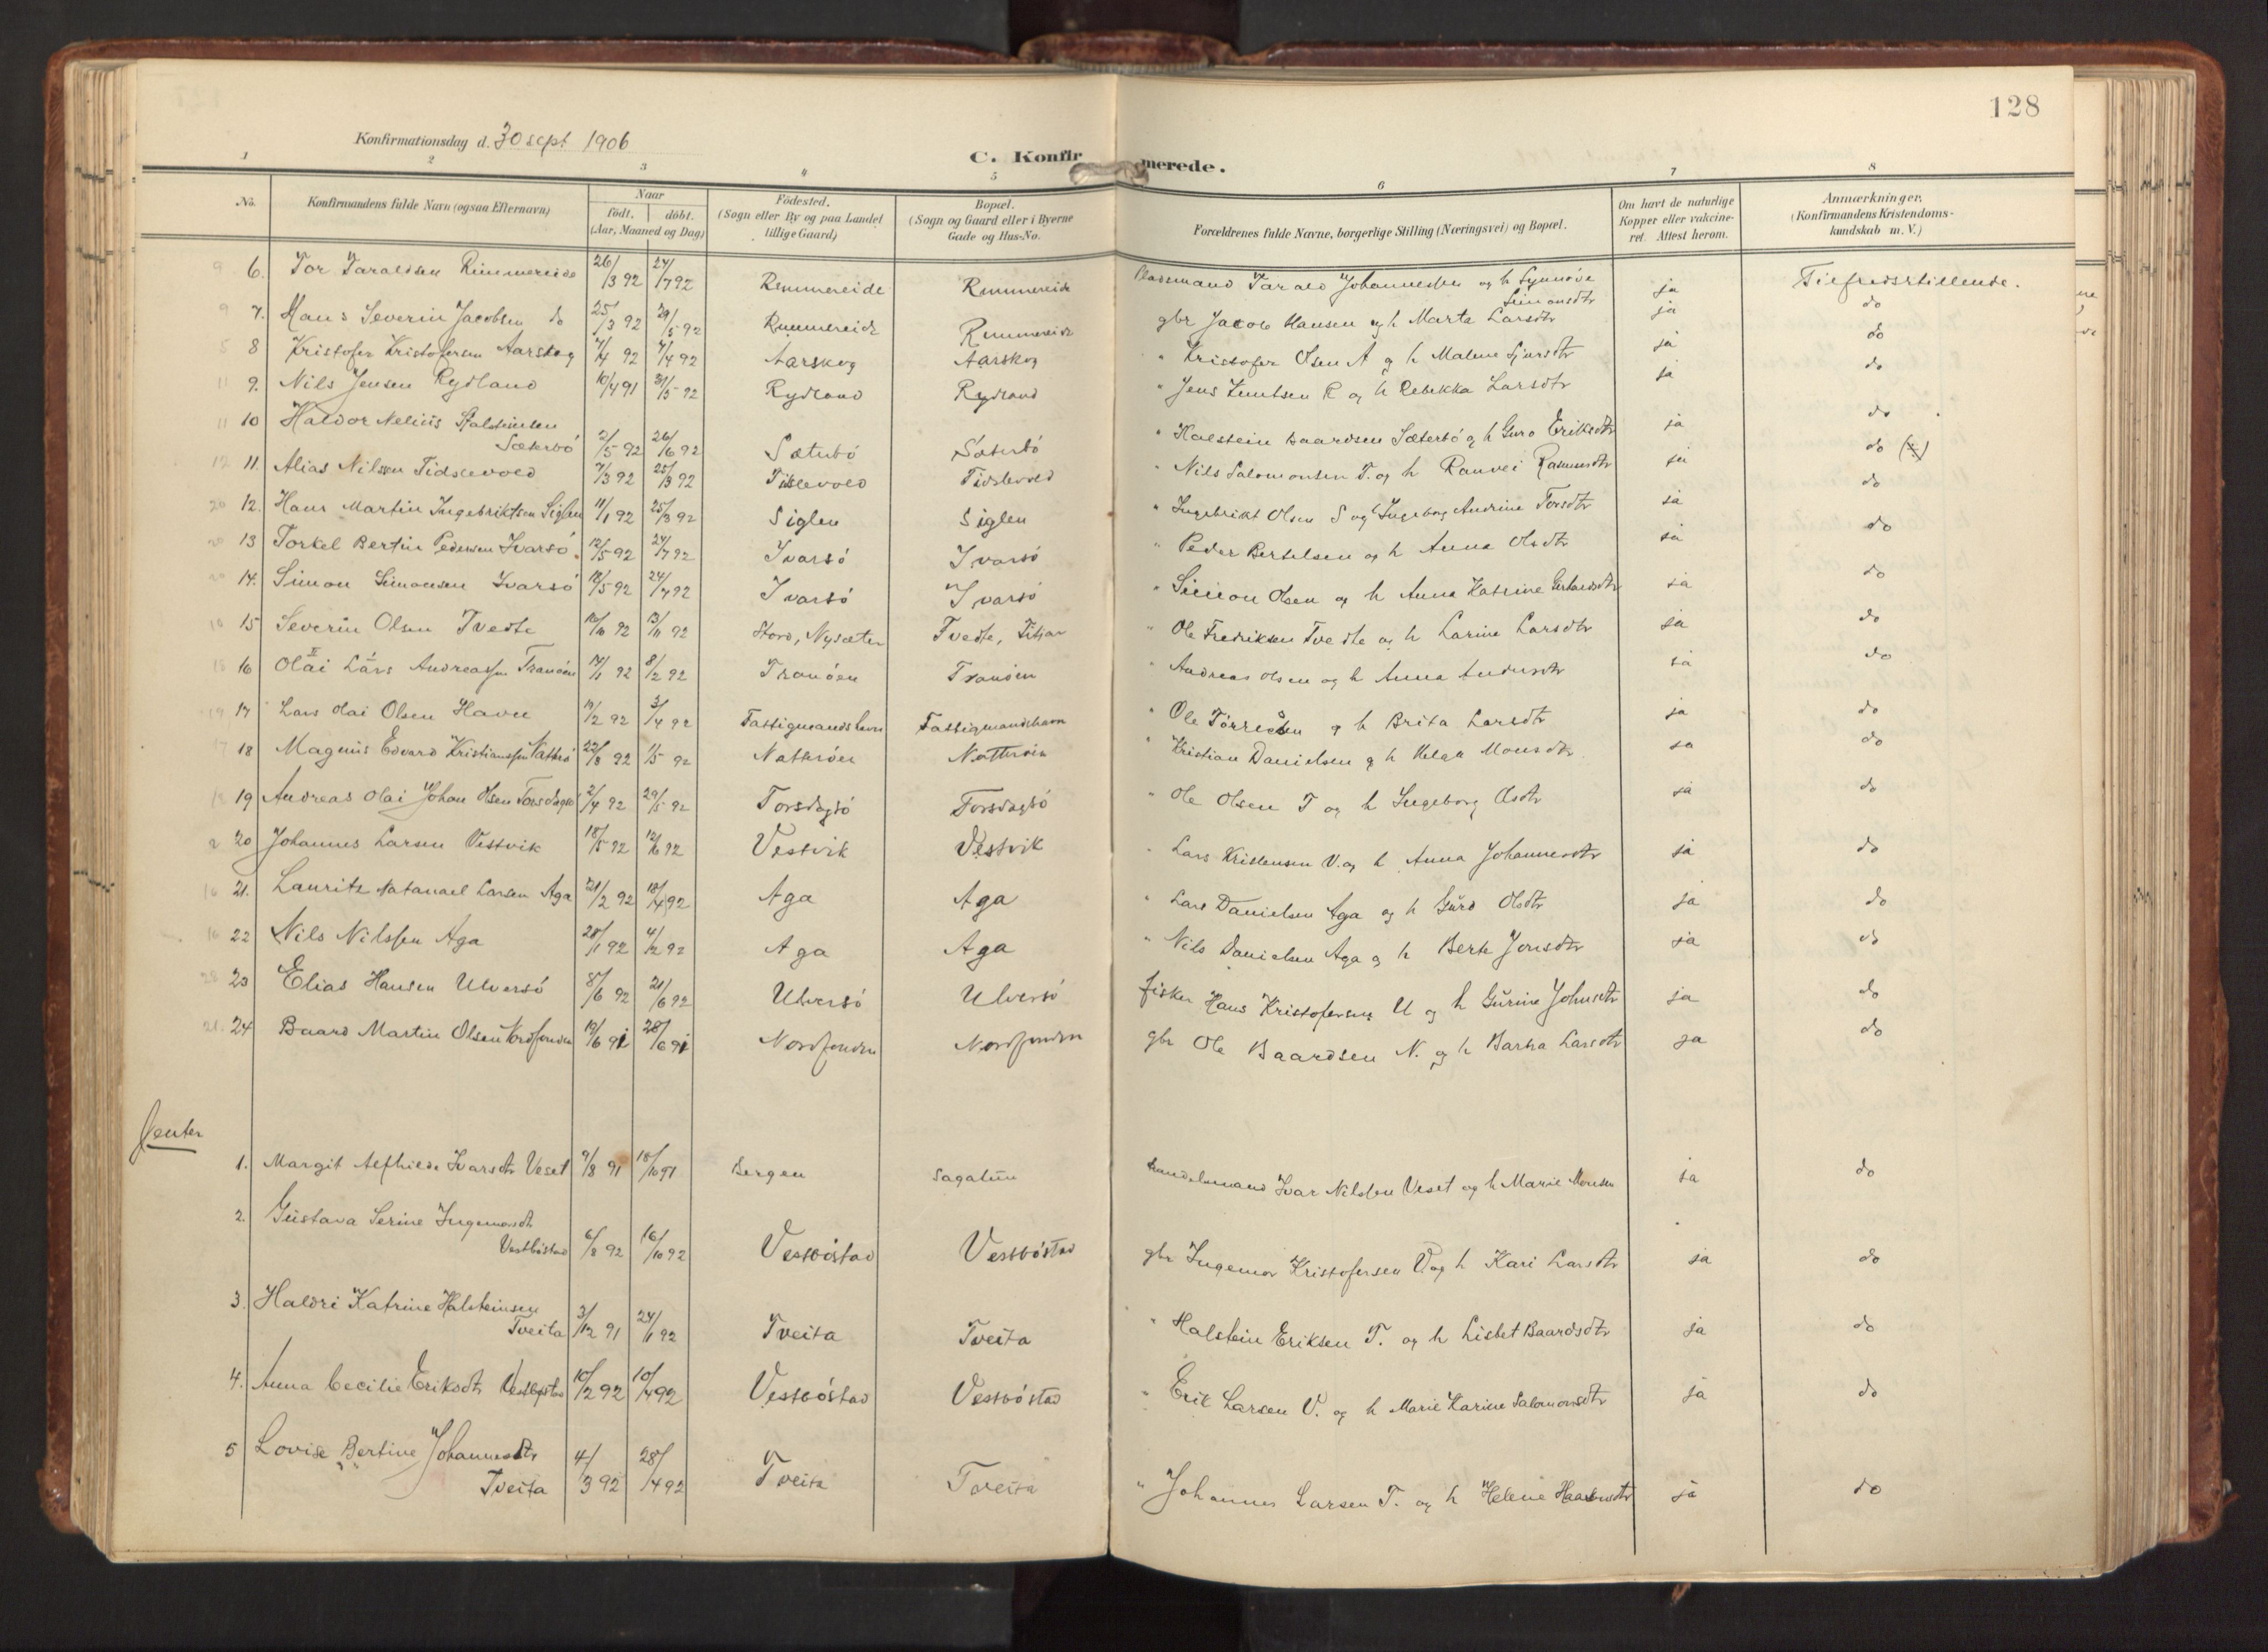 128
Konfirmationsdag d. 30 sept 1906
C. Konfirmerede.
1 2 3 4 5 6 7 8
No. Konfirmandens fulde Navn (ogsaa Efternavn) Naar födt. döbt. (Aar, Maaned og Dag) Födested. (Sogn eller By og paa Landet tillige Gaard) Bopæl. (Sogn og Gaard eller i Byerne Gade og Hus-No. Forældrenes fulde Navne, borgerlige Stilling (Næringsvei) og Bopæl. Om havt de naturlige Kopper eller vakcineret. Attest herom. Anmærkninger. (Konfirmandens Kristendomskundskab m. V.)
9 6. Tor Taraldsen Rimmereide 26/3 92 24/7 92 Remmereide Remmereide Tarald Johannessen og h Synnöve Simonsdtr ja Tilfredsstillende.
9 7. Hans Severin Jacobsen do 25/3 92 29/5 92 Remmereide Remmereide gbr Jacob Hansen og h Marta Larsdtr ja do
8 Kristofer Kristofersen Aarskog 7/4 92 Aarskog Aarskog " Kristofer Olsen A og h Malene Sjursdtr ja do
11 9. Nils Jensen Rydland 10/4 91 31/5 92 Rydland Rydland " Jens Knutsen R og h Rebekka Larsdtr ja do
11 10 Haldor Nelius Halsteinsen Sæterbö 2/5 92 26/6 92 Sæterbö Sæterbö " Halstein Baardsen Sæterbö og h Guro Eriksdtr ja do
12 11. Alias Nilssen Tidslevold 7/3 92 25/3 92 Tislevold Tidslevold " Nils Salomonsen T. og h Ranvei Rasmusdtr ja do (x)
20 12. Hans Martin Ingebriktsen Siglen 11/1 92 25/3 92 Siglen Siglen " Ingebrikt Olsen S og h Ingeborg Andrine Torsdtr ja do
13 Torkel Bertin Pedersen Ivarsö 12/5 92 24/7 92 Ivarsö Ivarsö " Peder Bertelsen og h Anna Olsdtr ja do
14. Simon Simonsen Ivarsö 18/5 92 24/7 92 Ivarsö Ivarsö " Simon Olsen og h Anna Katrine ja do
10 15 Severin Olsen Tvedte 92 13/11 92 Stord, Nysæter Tvedte, Fitjar " Ole Fredriksen Tvedte og h Larine Larsdtr ja do
18 16 Olai Lars Andreassen Tranöen 14/1 92 8/2 92 Tranöen Tranöen " Andreas Olsen og h Anna ja do
19 17 Lars Olai Olsen Havn 19/2 92 3/4 92 Fattigmandshavn Fattigmandshavn " Ole Törresen og h Brita Larsdtr ja do
17 18 Magnus Edvard Kristianssen 92 1/5 92 Natteröen Natteröen " Kristian Danielsen og h Helga Monsdtr ja do
18 19 Andreas Olai Johan Olsen Torsdagsö 2/4 92 29/5 92 Torsdagsö Torsdagsö " Ole Olsen T og h Ingeborg Olsdtr ja do
2 20 Johannes Larsen Vestvik 18/5 92 12/6 92 Vestvik Vestvik " Lars Kristensen V. og h Anna Johannesdtr ja do
16 21. Lauritz Natanael Larsen Aga 21/2 92 18/4 92 Aga Aga " Lars Danielsen Aga og h Guro Olsdtr ja do
16 22 Nils Nilssen Aga 28/1 92 92 Aga Aga " Nils Danielsen Aga og h Berte Jonsdtr ja do
23 Elias Hansen Ulversö 8/6 92 21/6 92 Ulversö Ulversö fisker Hans Kristofersen U og h Gurine Johnsdtr ja do
21. 24 Baard Martin Olsen Nordfonden 19/6 91 28/6 91 Nordfonden Nordfonden gbr Ole Baardsen N. og h Larsdtr ja do
Jenter
1. Margit Alfhilde Ivarsdtr Veset 9/8 91 18/10 91 Bergen Sagatun handelsmand Ivar Nilssen Veset og h Marie Monsen ja do
2. Gustava Serine Ingemorsdtr Vestböstad 6/8 92 16/10 92 Vestböstad Vestböstad gbr Ingemor Kristofersen V. og h Kari Larsdtr ja do
3. Haldri Katrine Halsteinsen Tveita 3/12 91 24/1 92 Tveita Tveita " Halstein Eriksen T. og h Lisbet Baardsdtr ja do
4. Anna Cecilie Eriksdtr Vestböstad 10/2 92 10/4 92 Vestböstad Vestböstad " Erik Larsen V. og h Marie Karine Salomonsdtr ja do
5 Lovise Bertine Johannesdtr Tveita 4/3 92 28/4 92 Tveita Tveita " Johannes Larsen T. og h Helene ja do